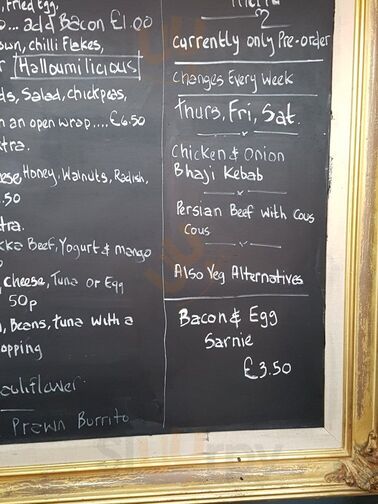 , fried Egg,
o... add Bacon £1.00
own, chilli Flakes,
r Halloumilicious
ds, Salad, chickpeas,
n an open wrap....£6.50
xtra.
ese Honey, Walnuts, Radish,
.50
tra.
kka Beef, Yogurt & mango
, cheese, Tuna or Egg
50p
, Beans, tuna with a
opping
auliflower
Prawn Burrito
?
currently only Pre-order
Changes Every Week
Thurs, Fri, Sat.
Chicken & Onion
Bhaji Kebab
Persian Beef with Cous
Cous
Also Veg Alternatives
Bacon & Egg
Sarnie
£3.50